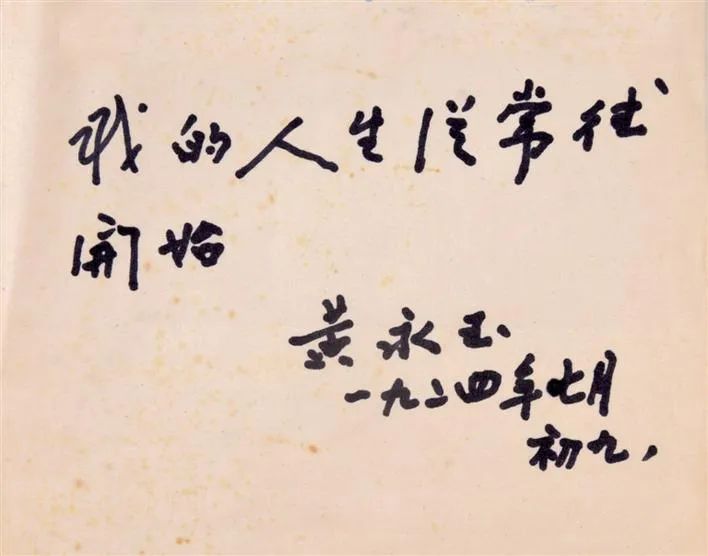 我的人生從常德
開始
黄永玉
一九二四年七月
初九，